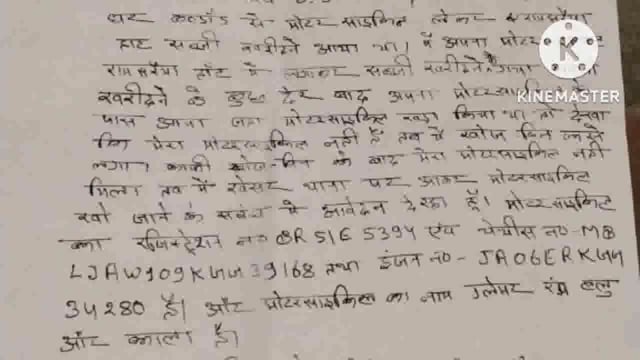 घर कल्डॉड से मोटरसाइकिल लेकर रामसरैया
हाट सब्जी खरीदने आया था। मैं अपना मोटर
रामसरैया हॉट में लगाकर सब्जी खरीदने गया
खरीदने के कुछ देर बाद अपना मोटरसाइकिल
पास आया जहां मोटरसाइकिल खड़ा किया था तो देखा
कि मेरा मोटरसाइकिल नहीं है तब मैं खोज बिन करने
लगा। काफी खोज-बिन के बाद मेरा मोटरसाइकिल नहीं
मिला तब मैं खेसर थाना पर आकर मोटरसाइकिल
खो जाने के संबंध में आवेदन दे रहा हूँ। मोटरसाइकिल
का रजिस्ट्रेशन न० BR51E5394 एवं चेचीस न०-MB
LJAW909KJJJ39168 तथा इंजन न०- JA06ERKJJJ
34280 है। और मोटरसाइकिल का नाम ग्लेमर रंग ब्लु
और काला है।
KINEMASTER